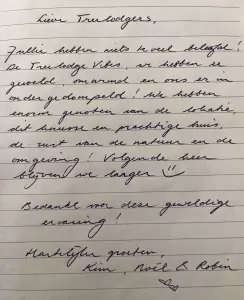 Lieve Treelodgers,
Jullie hebben niets te veel beloofd!
De Treelodge Vibes, we hebben ze
gevoeld, omarmd en ons er in
onder gedompeld! We hebben
enorm genoten van de lokatie,
dit knusse en prachtige huis,
de rust van de natuur en de
omgeving! Volgende keer
blijven we langer
Bedankt voor deze geweldige
ervaring!
Hartelijke groeten,
Kim, Noël & Robin